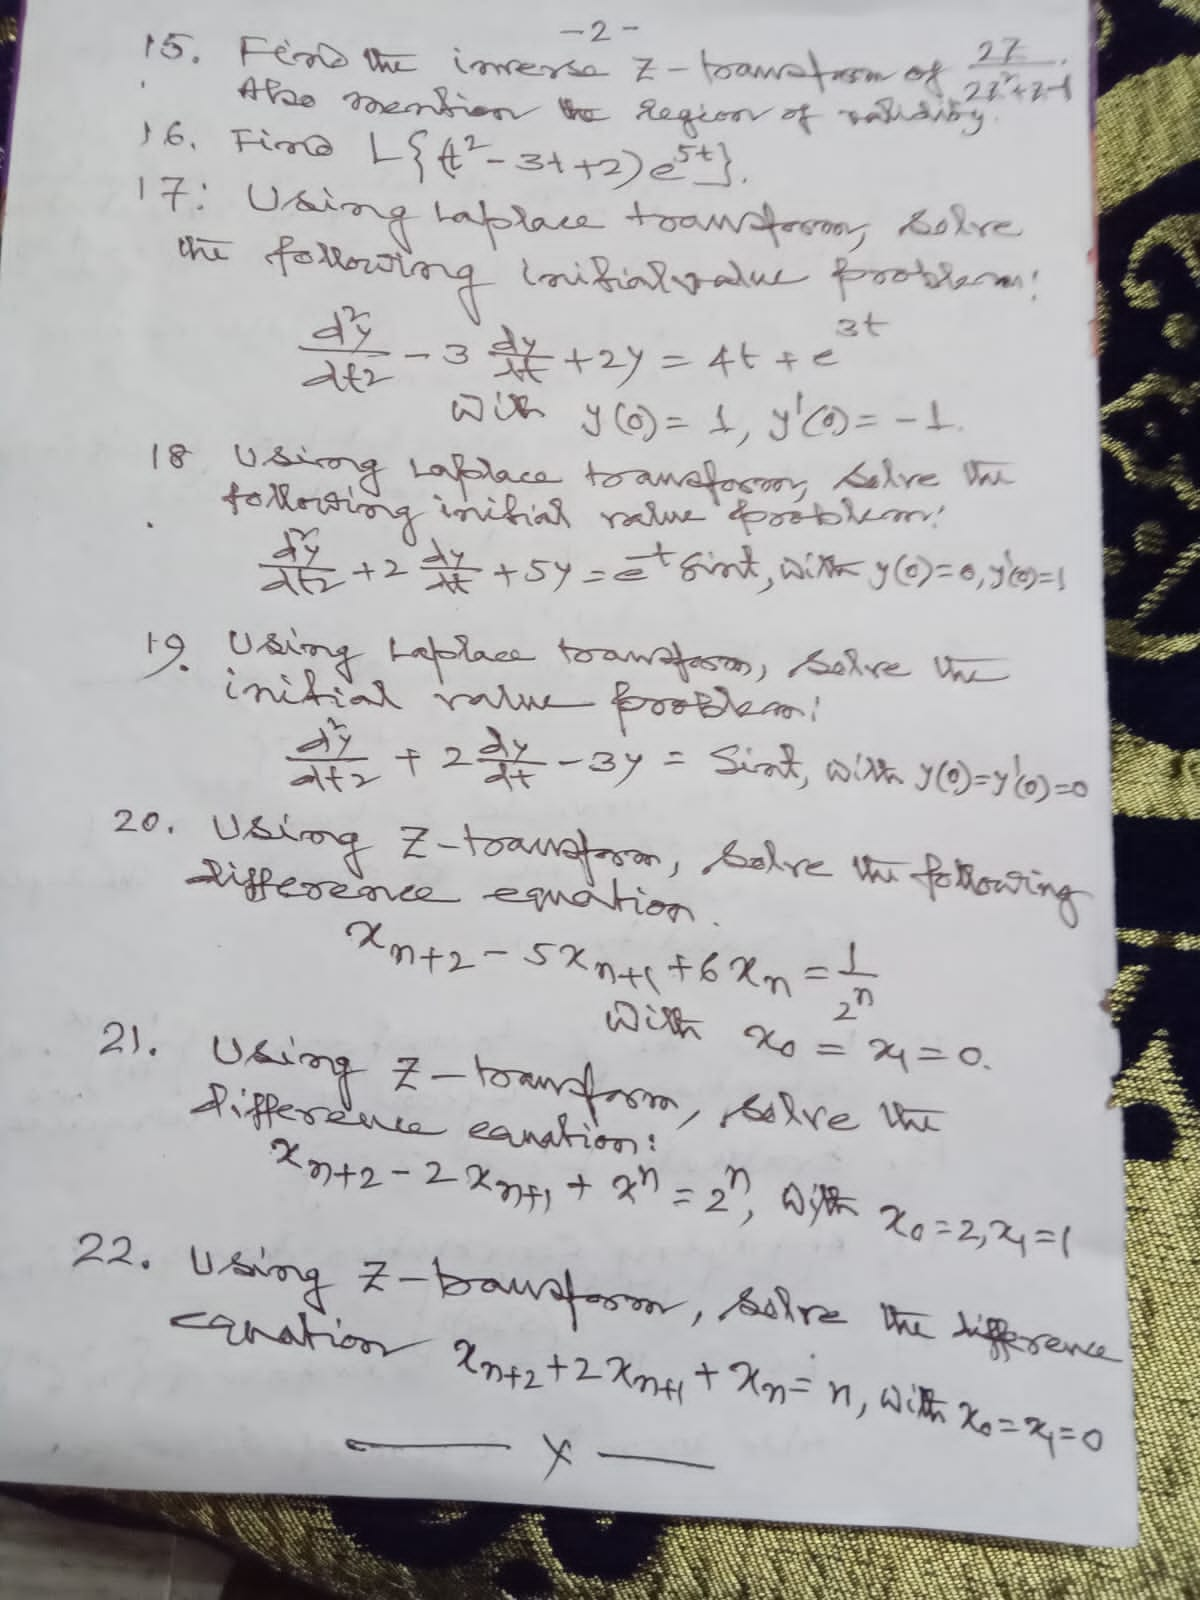 -2-
15. Find the inverse Z-transform of 2Z/(2Z²+Z-1).
Also mention the region of validity.
16. Find L{(t²-3t+2)e^5t}.
17: Using Laplace transform, solve
the following initial value problem:
d²y/dt² - 3 dy/dt + 2y = 4t + e^3t
with y(0) = 1, y'(0) = -1.
18 Using Laplace transform, solve the
following initial value problem:
d²y/dt² + 2 dy/dt + 5y = e^-t sint, with y(0)=0, y'(0)=1
19. Using Laplace transform, solve the
initial value problem:
d²y/dt² + 2 dy/dt - 3y = Sint, with y(0)=y'(0)=0
20. Using Z-transform, solve the following
difference equation.
x_{n+2} - 5x_{n+1} + 6x_n = 1/2^n
with x₀ = x₁ = 0.
21. Using Z-transform, solve the
difference equation:
x_{n+2} - 2x_{n+1} + x^n = 2^n, with x₀=2, x₁=1
22. Using Z-transform, solve the difference
equation x_{n+2} + 2x_{n+1} + x_n = n, with x₀=x₁=0
— x —